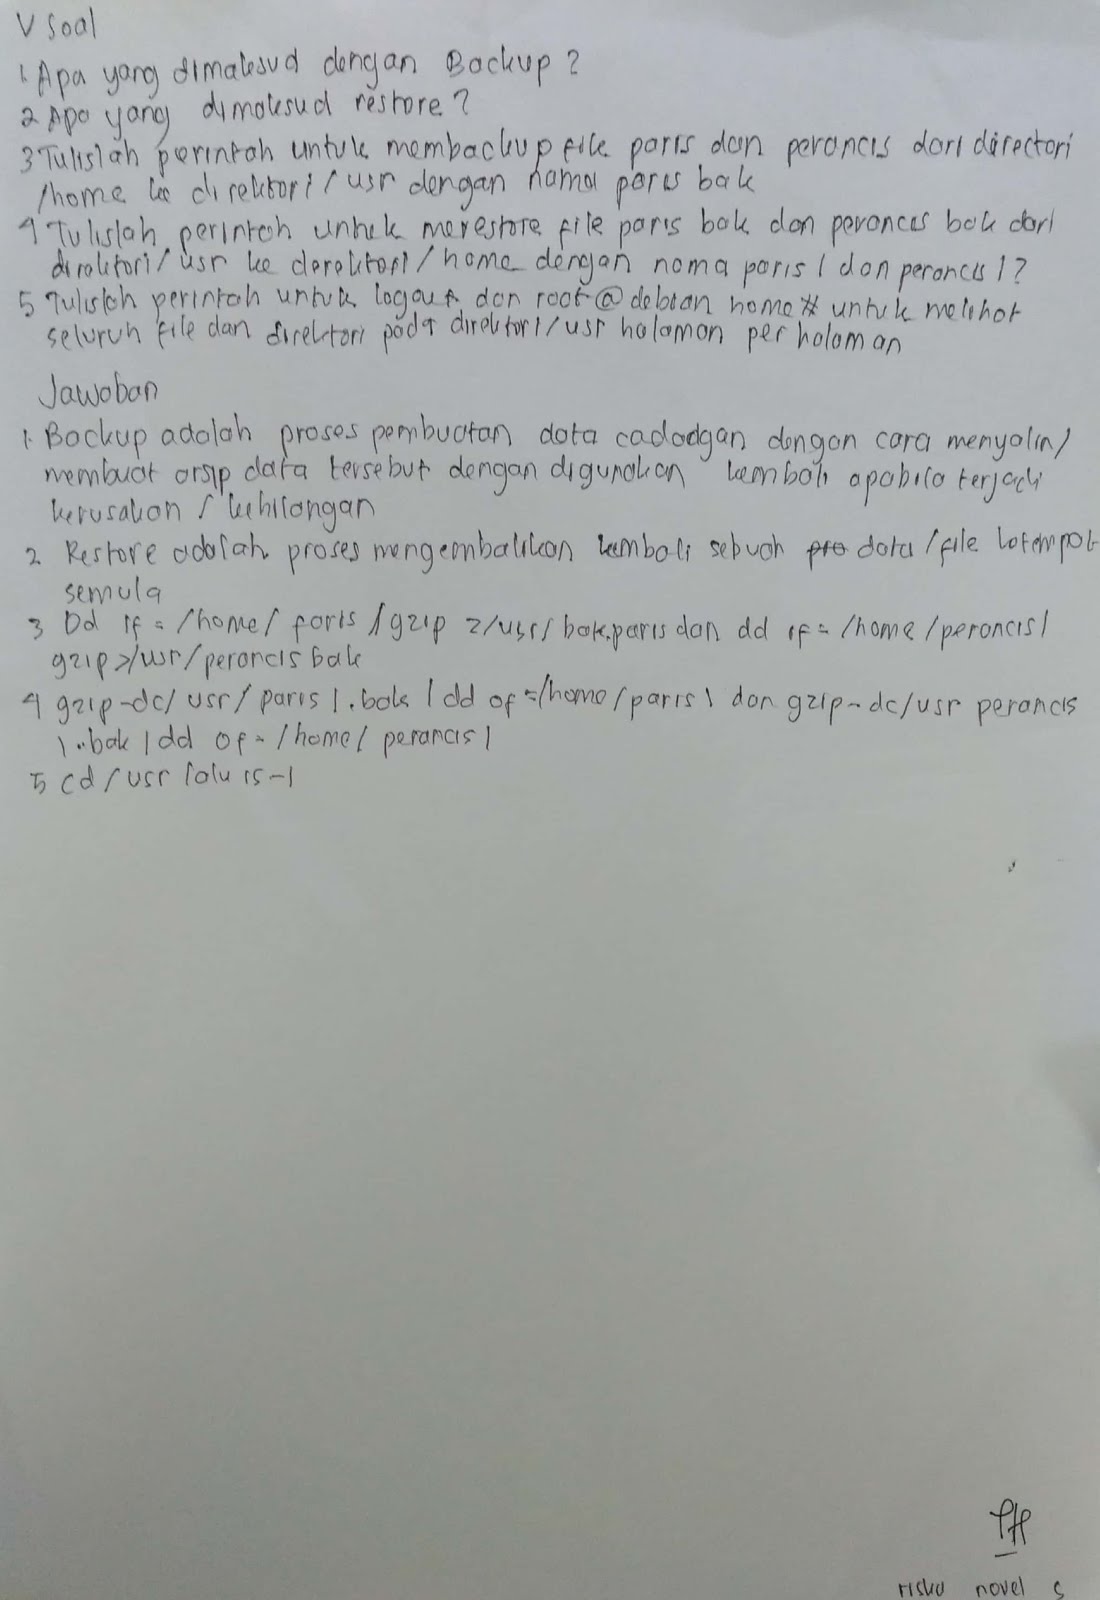 V Soal
1. Apa yang dimaksud dengan Backup?
2 Apa yang dimaksud restore?
3 Tulislah perintah untuk membackup file paris dan perancis dari directori
/home ke direktori/usr dengan nama paris bak
4 Tulislah perintah untuk merestore file paris bak dan perancis bak dari
direktori/usr ke derektori/home dengan nama paris 1 dan perancis 1?
5 Tulislah perintah untuk logout dan root@debian home# untuk melihat
seluruh file dan direktori pada direktori/usr halaman per halaman
Jawaban
1. Backup adalah proses pembuatan data cadadgan dengan cara menyalin/
membuat arsip data tersebut dengan digunakan kembali apabila terjadi
kerusakan / kehilangan
2 Restore adalah proses mengembalikan kembali sebuah data/file
semula
3 Dd if = /home/ paris /gzip >/usr/ bak.paris dan dd if = /home /perancis|
gzip >/usr/perancis bak
4 gzip-dc/ usr/ paris 1.bak | dd of =/home/paris 1 dan gzip-dc/usr perancis
1..bak | dd of = /home/ perancis 1
5 cd /usr lalu ls-l
riska novel s